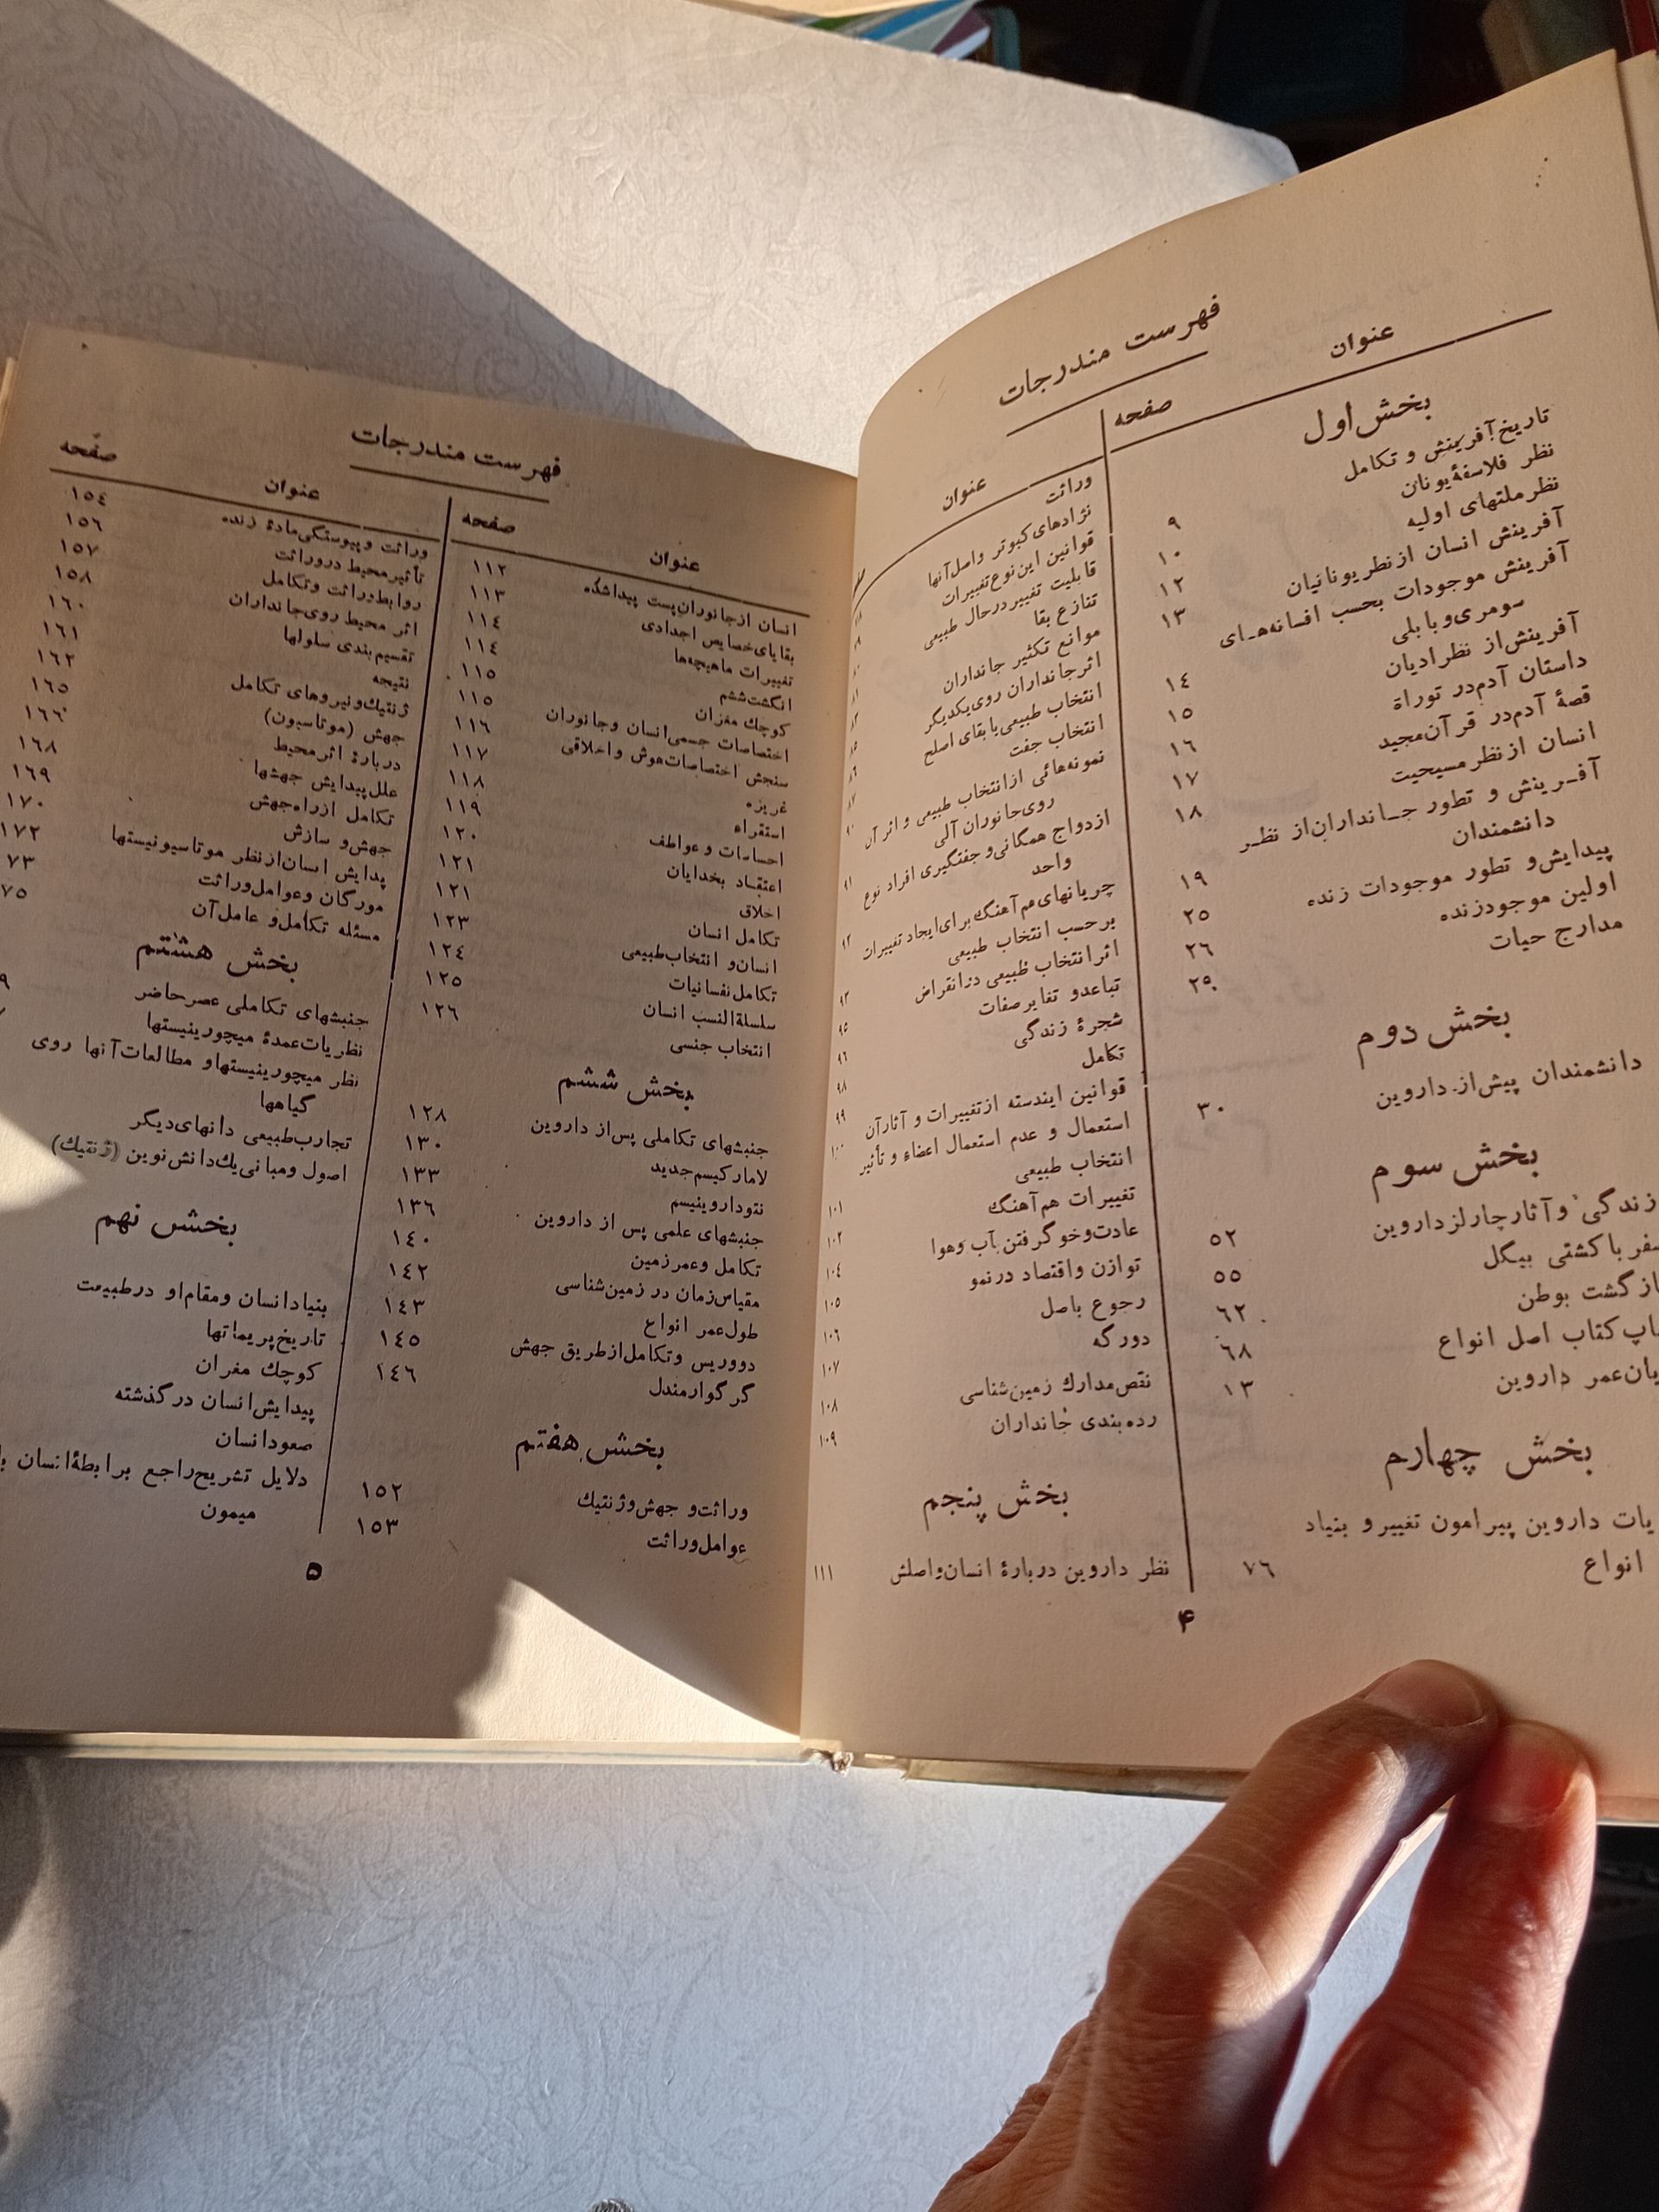 فهرست مندرجات
عنوان
صفحه
بخش اول
تاریخ آفرینش و تکامل
نظر فلاسفهٔ یونان
نظر ملتهای اولیه ۹
آفرینش انسان از نظر یونانیان ۱۰
آفرینش موجودات بحسب افسانه‌های ۱۲
سومری و بابلی ۱۳
آفرینش از نظر ادیان
داستان آدم در توراة ۱۴
قصهٔ آدم در قرآن مجید ۱۵
انسان از نظر مسیحیت ۱۶
آفرینش و تطور جانداران از نظر ۱۷
دانشمندان ۱۸
پیدایش و تطور موجودات زنده ۱۹
اولین موجود زنده ۲۵
مدارج حیات ۲۶
۲۹
بخش دوم
دانشمندان پیش از داروین ۳۰
بخش سوم
زندگی و آثار چارلز داروین ۵۲
سفر با کشتی بیگل ۵۵
بازگشت بوطن ۶۲
چاپ کتاب اصل انواع ۶۸
عمر داروین ۱۳
بخش چهارم
داروین پیرامون تغییر و بنیاد
انواع ۷۶
عنوان
وراثت
نژادهای کبوتر و اصل آنها
قوانین این نوع تغییرات
قابلیت تغییر در حال طبیعی
تنازع بقا
موانع تکثیر جانداران
اثر جانداران روی یکدیگر
انتخاب طبیعی یا بقای اصلح
انتخاب جفت
نمونه‌هائی از انتخاب طبیعی و اثر آن
روی جانوران آلی
ازدواج همگانی و جفتگیری افراد نوع
واحد
جریانهای هم‌آهنگ برای ایجاد تغییرات
برحسب انتخاب طبیعی
اثر انتخاب طبیعی در انقراض
تباعد و تغایر صفات
شجرهٔ زندگی
تکامل
قوانین ایندسته از تغییرات و آثار آن
استعمال و عدم استعمال اعضاء و تأثیر
انتخاب طبیعی
تغییرات هم‌آهنگ ۱۰۱
عادت و خو گرفتن بآب و هوا ۱۰۲
توازن و اقتصاد در نمو ۱۰۴
رجوع باصل ۱۰۵
دورگه ۱۰۶
نقص مدارک زمین‌شناسی ۱۰۷
رده‌بندی جانداران ۱۰۸
۱۰۹
بخش پنجم
نظر داروین دربارهٔ انسان و اصلش ۱۱۱
۴
فهرست مندرجات
عنوان
صفحه
انسان از جانوران پست پیدا شده ۱۱۲
بقایای خصایص اجدادی ۱۱۳
تغییرات ماهیچه‌ها ۱۱۴
انگشت ششم ۱۱۴
کوچک مغزان ۱۱۵
اختصاصات جسمی انسان و جانوران ۱۱۵
سنجش اختصاصات هوش و اخلاقی ۱۱۶
غریزه ۱۱۷
استقراء ۱۱۸
احساسات و عواطف ۱۱۹
اعتقاد بخدایان ۱۲۰
اخلاق ۱۲۱
تکامل انسان ۱۲۱
انسان و انتخاب طبیعی ۱۲۳
تکامل نفسانیات ۱۲۴
سلسلةالنسب انسان ۱۲۵
انتخاب جنسی ۱۲۶
بخش ششم
جنبشهای تکاملی پس از داروین ۱۲۸
لامارکیسم جدید ۱۳۰
نئوداروینیسم ۱۳۳
جنبشهای علمی پس از داروین ۱۳۶
تکامل و عمر زمین ۱۴۰
مقیاس زمان در زمین‌شناسی ۱۴۲
طول عمر انواع ۱۴۳
دووریس و تکامل از طریق جهش ۱۴۵
گرگوار مندل ۱۴۶
بخش هفتم
وراثت و جهش و ژنتیک ۱۵۲
عوامل وراثت ۱۵۳
عنوان
صفحه
وراثت و پیوستگی مادهٔ زنده ۱۵۴
تأثیر محیط در وراثت ۱۵۶
روابط وراثت و تکامل ۱۵۷
اثر محیط روی جانداران ۱۵۸
تقسیم‌بندی سلولها ۱۶۰
نتیجه ۱۶۱
ژنتیک و نیروهای تکامل ۱۶۲
جهش (موتاسیون) ۱۶۵
دربارهٔ اثر محیط ۱۶۶
علل پیدایش جهشها ۱۶۸
تکامل از راه جهش ۱۶۹
جهش و سازش ۱۷۰
پدایش انسان از نظر موتاسیونیستها ۱۷۲
مورگان و عوامل وراثت ۷۳
مسئله تکامل و عامل آن ۷۵
بخش هشتم
جنبشهای تکاملی عصر حاضر
نظریات عمدهٔ میچورینیستها
نظر میچورینیستها و مطالعات آنها روی
گیاهها
تجارب طبیعی دانهای دیگر
اصول و مبانی یک دانش نوین (ژنتیک)
بخش نهم
بنیاد انسان و مقام او در طبیعت
تاریخ پریماتها
کوچک مغزان
پیدایش انسان در گذشته
صعود انسان
دلایل تشریح راجع برابطهٔ انسان با
میمون
۵